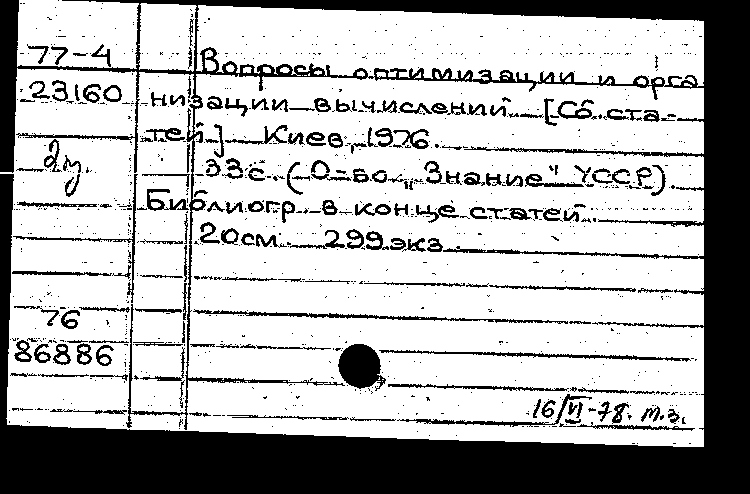 77-4
Вопросы оптимизации и орга
23160
низации вычислений. [Сб. ста-
тей]. Киев, 1976.
2у.
33с. (О-во „Знание" УССР).
Библиогр. в конце статей.
20см. 299экз.
76
86886
16/VI-78. т.з.